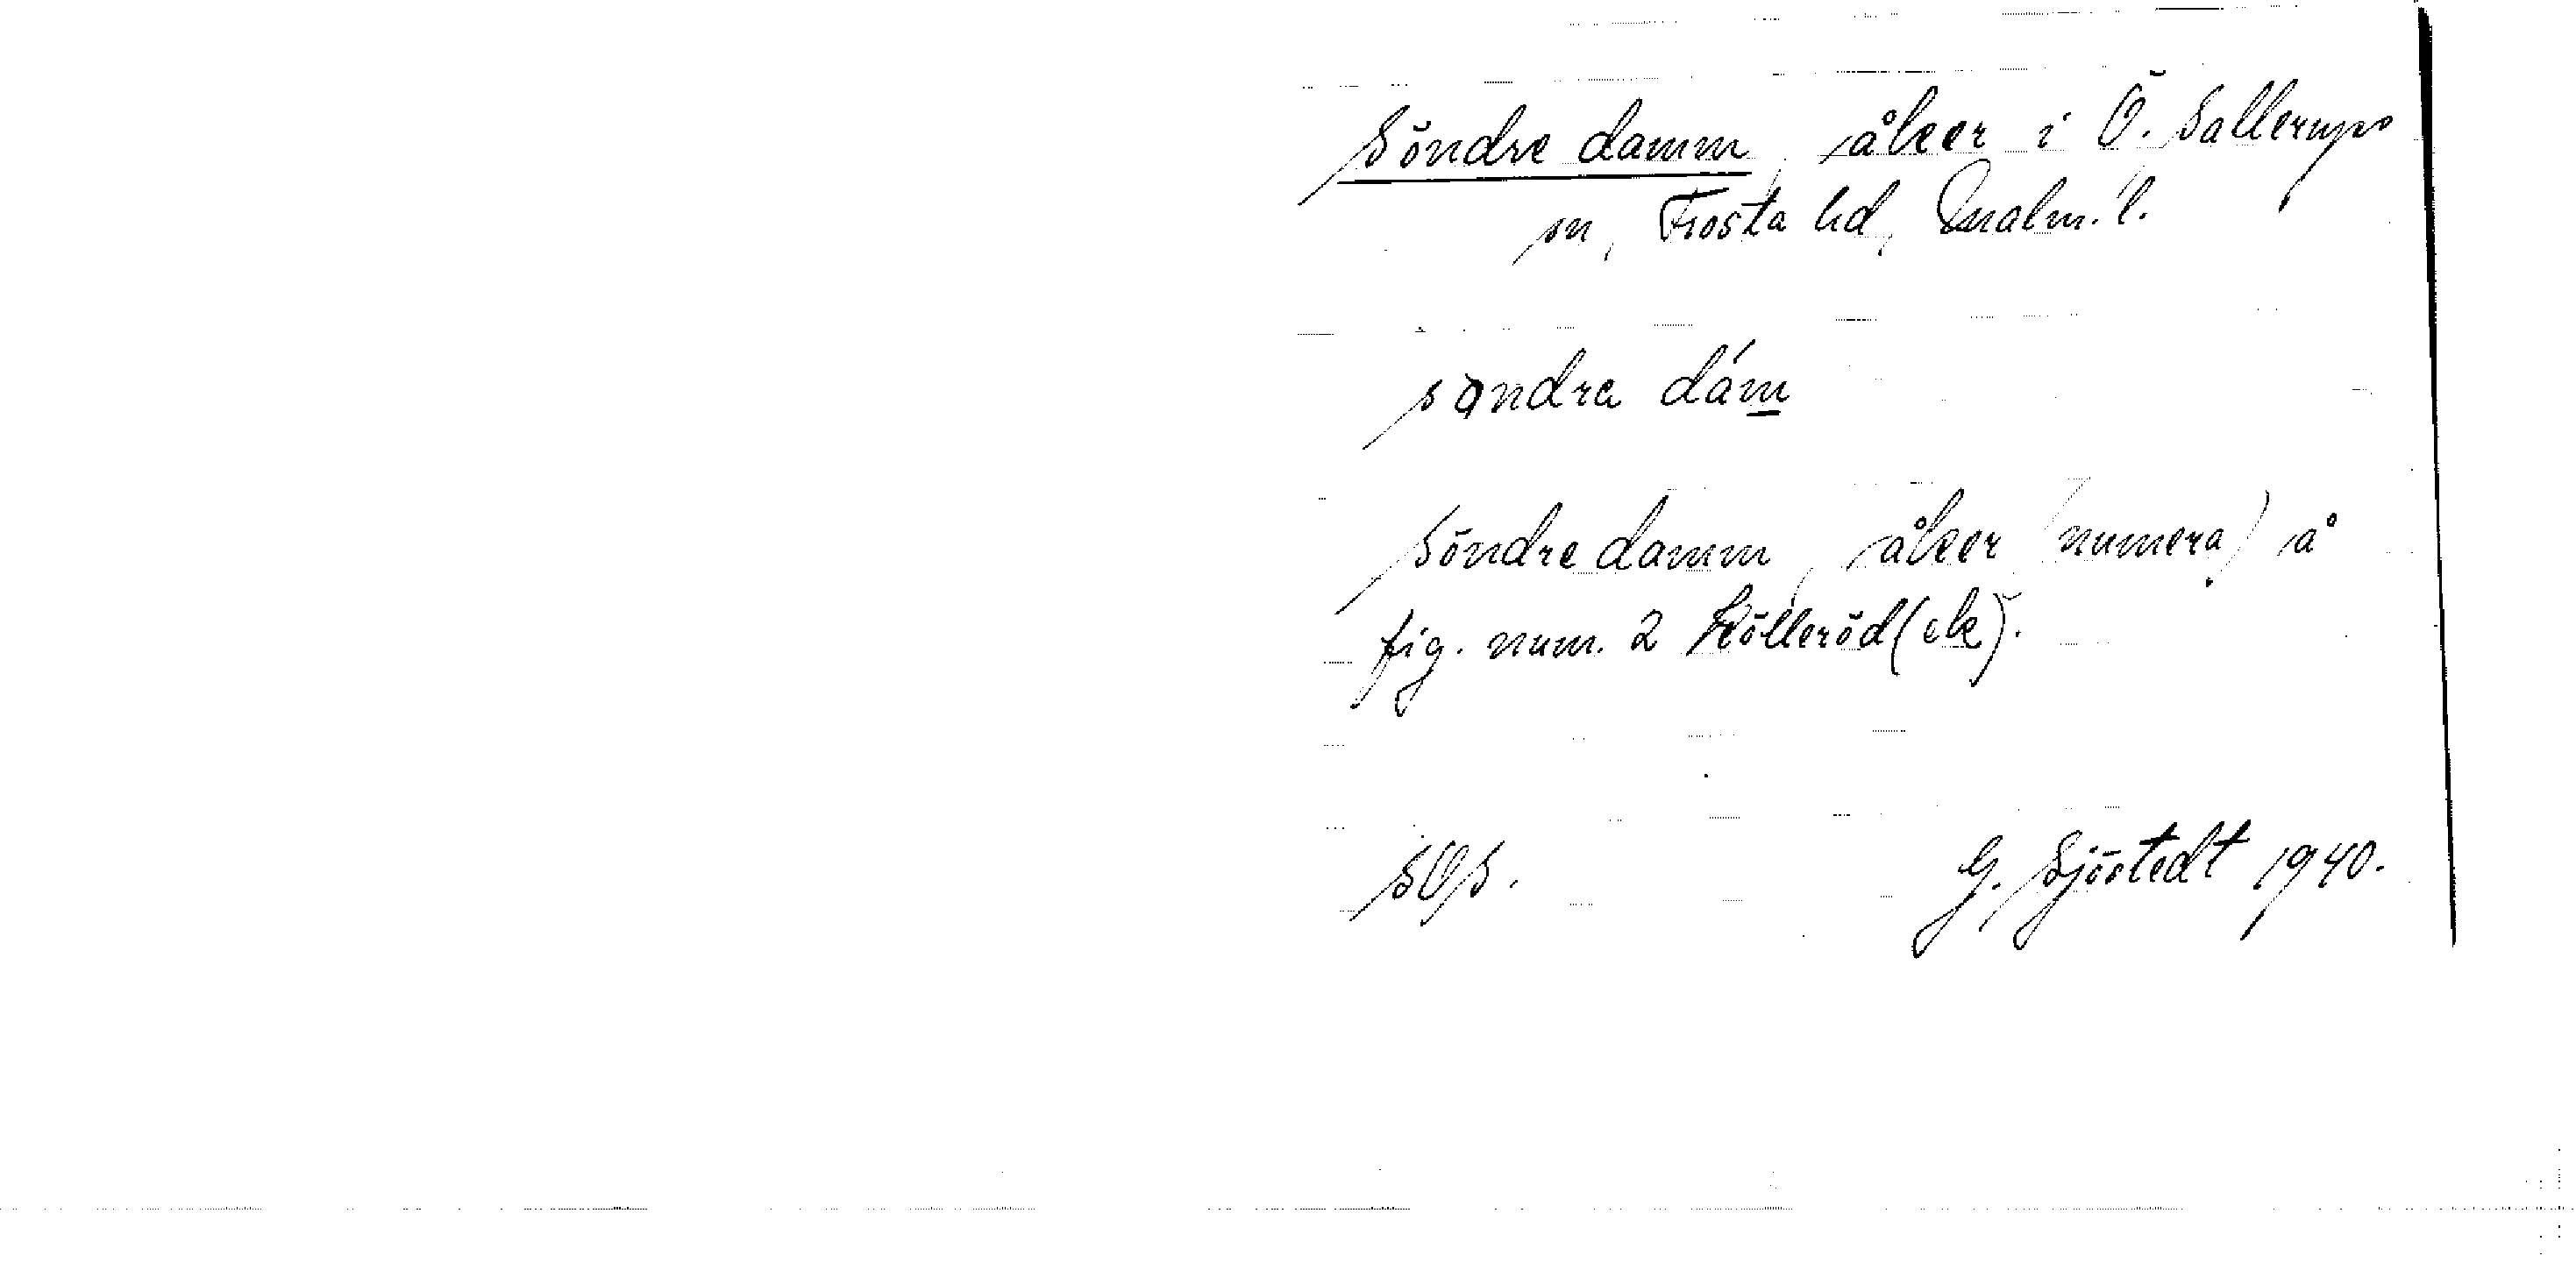 Söndre damm, åker i Ö. Sallerups
sn, Frosta hd, Malm. l.
sǫndrə dám
Söndre damm, åker (numera) å
fig. num. 2 Kölleröd (ek).
SOS.
G. Sjöstedt 1940.